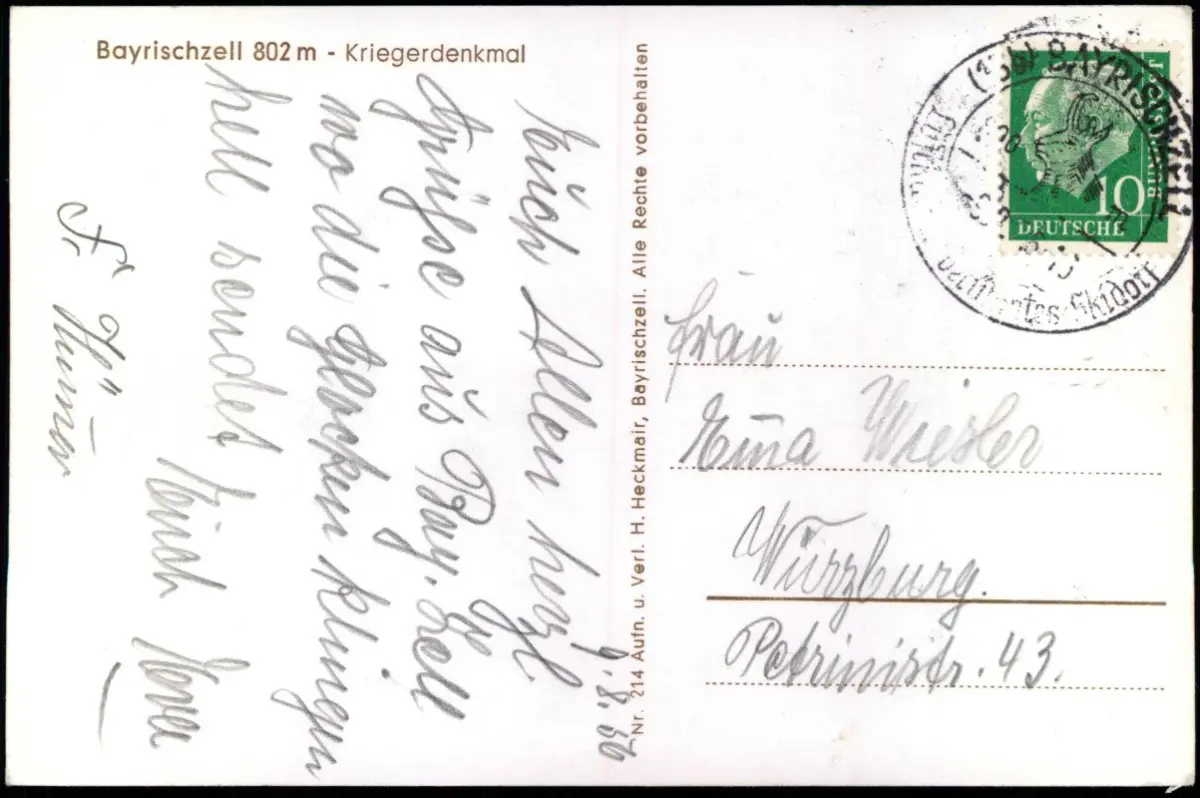 Bayrischzell 802 m - Kriegerdenkmal
9.8.56
Euch Allen herzl.
Grüße aus Bay. Zell
wo die Glocken klingen
hell sendet
Euch
Fr. Hümer
Nr. 214 Aufn. u. Verl. H. Heckmair, Bayrischzell. Alle Rechte vorbehalten
(13b) BAYRISCHZELL
Skidorf
10
DEUTSCHE
Frau
Wiesler
Würzburg.
Petrinistr. 43.